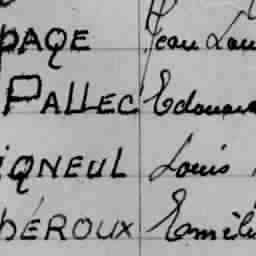 PAQE Jean Lou
PALLEC Edouard
IGNEUL Louis
HÉROUX Emile